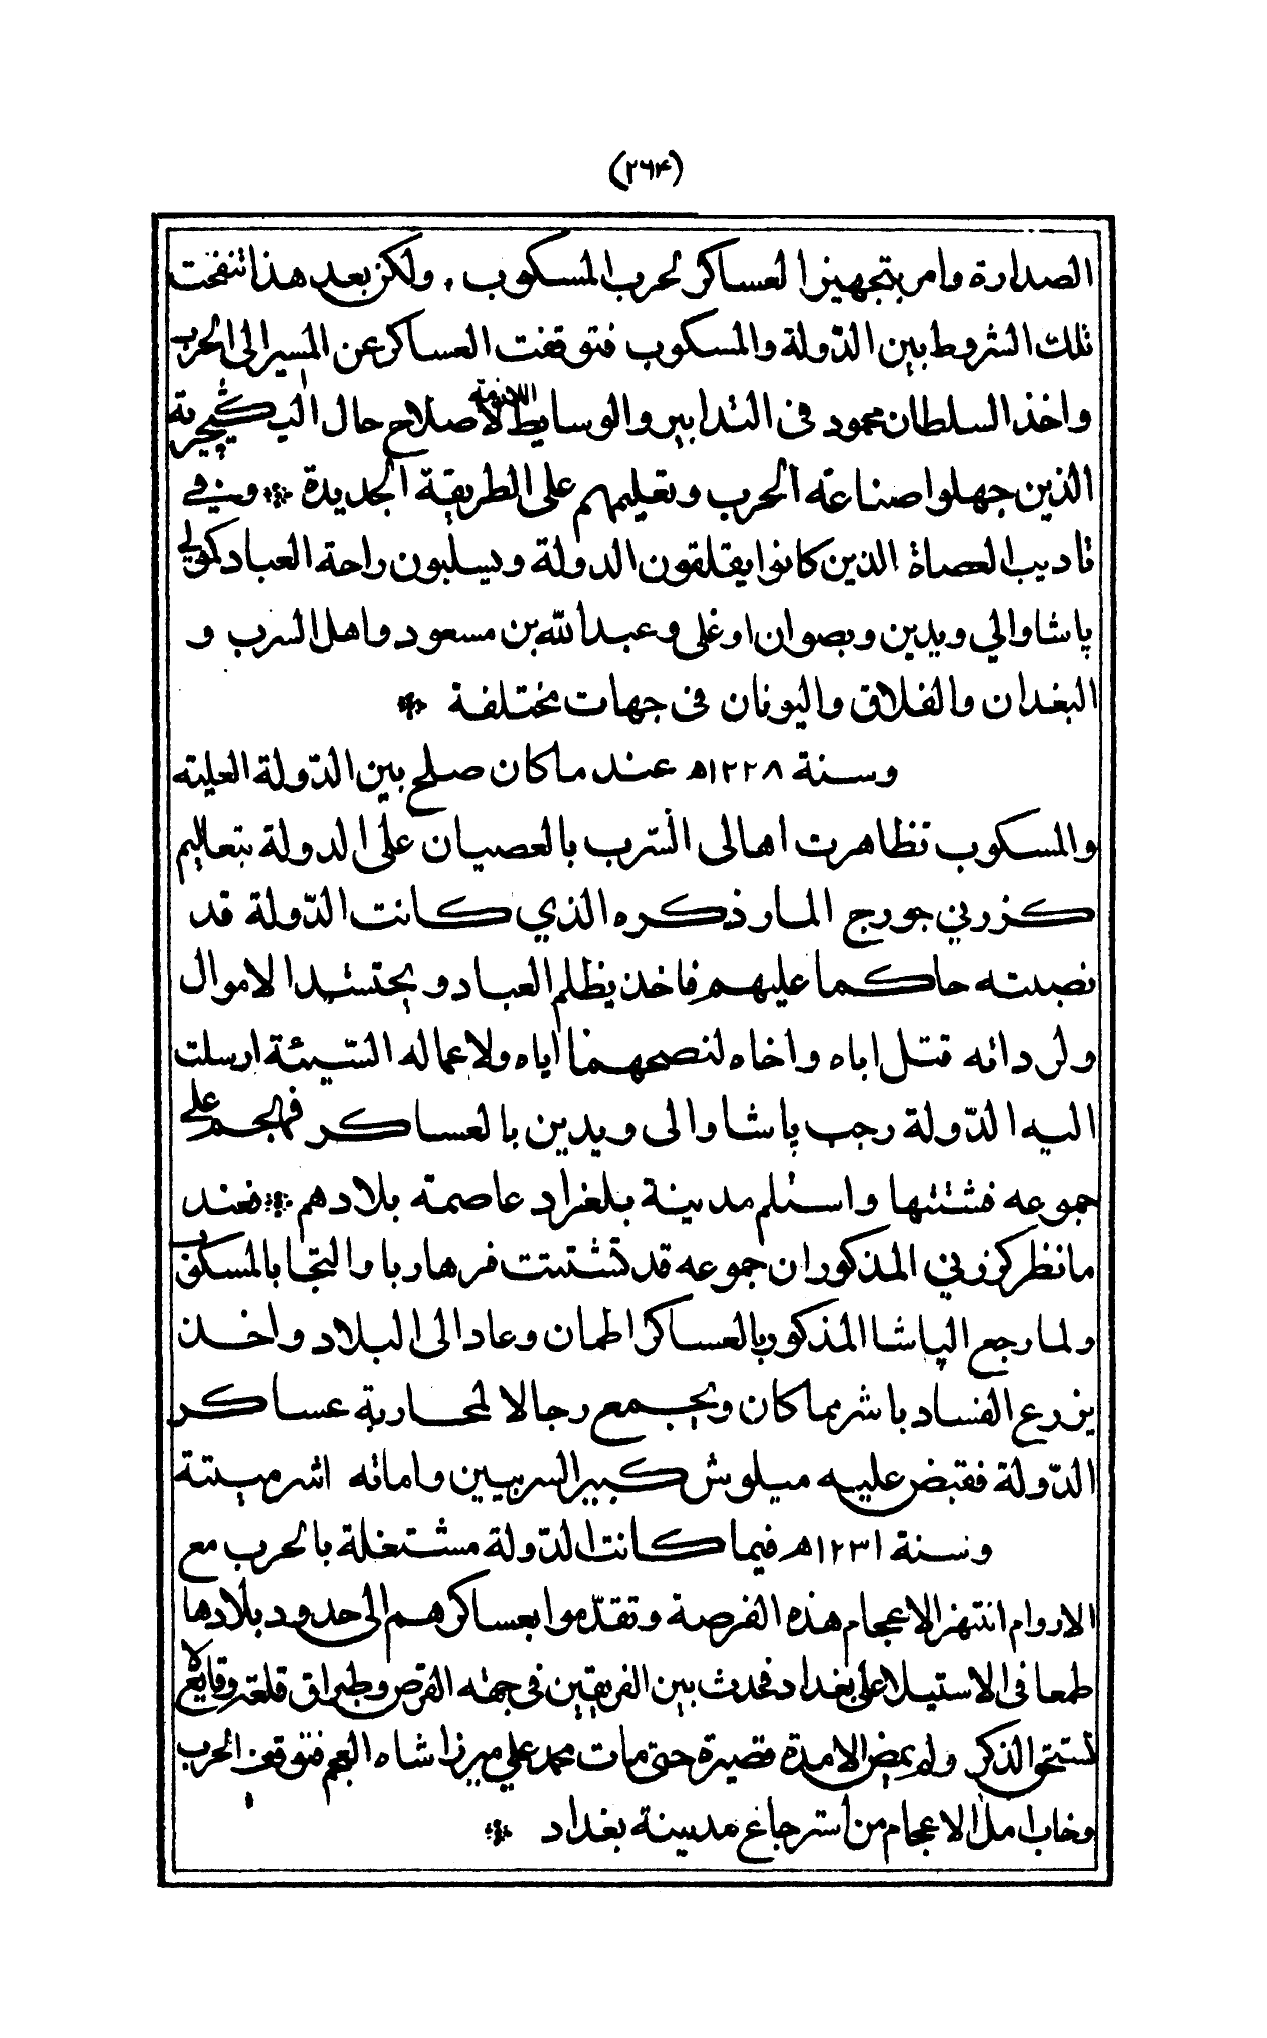 (٢٦٤)
الصدارة وامر بتجهيز العساكر لحرب المسكوب . ولكن بعد هذا تنقحت
تلك الشروط بين الدّولة والمسكوب فتوقفت العساكر عن المسير الى الحرب
واخذ السلطان محمود فى التدابير والوسايط اللازمة لأصلاح حال اليـكـيچرية
الذين جهلوا صناعة الحرب وتعليمهم على الطريقة الجديدة ❊ وفي
تاديب العصاة الذين كانوا يقلقون الدولة ويسلبون راحة العباد كتوكلي
پاشا والي ويدين وبصوان اوغلى وعبد الله بن مسعود واهل السرب و
البغدان والفلاق واليونان فى جهات مختلفة ❊
وسنة ١٢٢٨هـ عند ما كان صلح بين الدّولة العليّة
والمسكوب تظاهرت اهالى السّرب بالعصيان على الدولة بتعاليم
كزرني جورج المار ذكره الذي كانت الدّولة قد
نصبته حاكما عليهم فاخذ يظلم العباد ويحتشد الاموال
ولرداته قتل اباه واخاه لنصحهما اياه ولاعماله السّيئة ارسلت
اليه الدّولة رجب پاشا والى ويدين بالعساكر فهجم على
جموعه فشتتها واستلم مدينة بلغراد عاصمة بلادهم ❊ فعند
ما نظر كزرني المذكور ان جموعه قد تشتت فر هاربا والتجا بالمسكوب
ولما رجع الپاشا المذكور بالعساكر اطمان وعاد الى البلاد واخذ
يزرع الفساد باشر مما كان ويجمع رجالا لمحاربة عساكر
الدّولة فقبض عليه ميلوش كبير السربيين واماته اشر ميتة
وسنة ١٢٣١هـ فيما كانت الدّولة مشتغلة بالحرب مع
الاروام انتهز الاعجام هذه الفرصة وتقدّموا بعساكرهم الى حدود بلادها
طمعا فى الاستيلا على بغداد فحدث بين الفريقين فى جهة القرص وطبراق قلعة وقايع لا
تستحق الذكر ولم يمض الا مدة قصيرة حتى مات محمد علي ميرزا شاه العجم فتوقف الحرب
وخاب امل الاعجام من استرجاع مدينة بغداد ❊